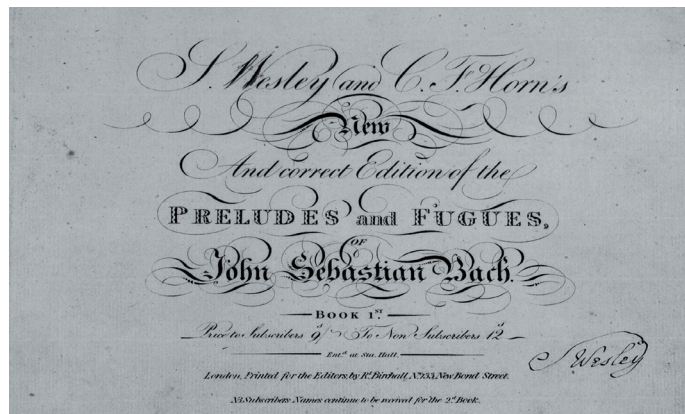 S. Wesley and C. F. Horn's
New
And correct Edition of the
PRELUDES and FUGUES,
OF
John Sebastian Bach.
BOOK 1.ST
Price to Subscribers 9/ To Non Subscribers 12
Ent.d at Sta. Hall.
S Wesley
London, Printed for the Editors, by R.t Birchall, No. 133, New Bond Street.
NB. Subscribers Names continue to be received for the 2.d Book.